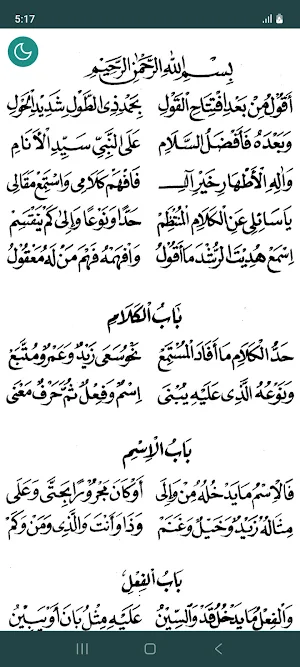 5:17
بِسْمِ اللهِ الرَّحْمٰنِ الرَّحِيْمِ
أَقُوْلُ مِنْ بَعْدِ افْتِتَاحِ الْقَوْلِ بِحَمْدِ ذِى الطَّوْلِ شَدِيْدِ الْحَوْلِ
وَبَعْدَهُ فَأَفْضَلُ السَّلَامِ عَلَى النَّبِيِّ سَيِّدِ الْأَنَامِ
وَاٰلِهِ الْأَطْهَارِ خَيْرِ اٰلِ فَافْهَمْ كَلَامِى وَاسْتَمِعْ مَقَالِى
يَا سَائِلِى عَنِ الْكَلَامِ الْمُنْتَظِمْ حَدًّا وَنَوْعًا وَإِلَى كَمْ يَنْقَسِمْ
اِسْمَعْ هُدِيْتَ الرُّشْدَ مَا أَقُوْلُ وَافْهَمْهُ فَهْمَ مَنْ لَهُ مَعْقُوْلُ
بَابُ الْكَلَامِ
حَدُّ الْكَلَامِ مَا أَفَادَ الْمُسْتَمِعْ نَحْوُ سَعَى زَيْدٌ وَعَمْرٌو مُتَّبِعْ
وَنَوْعُهُ الَّذِى عَلَيْهِ يُبْنَى اِسْمٌ وَفِعْلٌ ثُمَّ حَرْفُ مَعْنَى
بَابُ الْاِسْمِ
فَالْاِسْمُ مَا يَدْخُلُهُ مِنْ وَإِلَى أَوْ كَانَ مَجْرُوْرًا بِحَتَّى وَعَلَى
مِثَالُهُ زَيْدٌ وَخَيْلٌ وَغَنَمْ وَذَا وَأَنْتَ وَالَّذِى وَمَنْ وَكَمْ
بَابُ الْفِعْلِ
وَالْفِعْلُ مَا يَدْخُلُ قَدْ وَالسِّيْنُ عَلَيْهِ مِثْلُ بَانَ أَوْ يَبِيْنُ